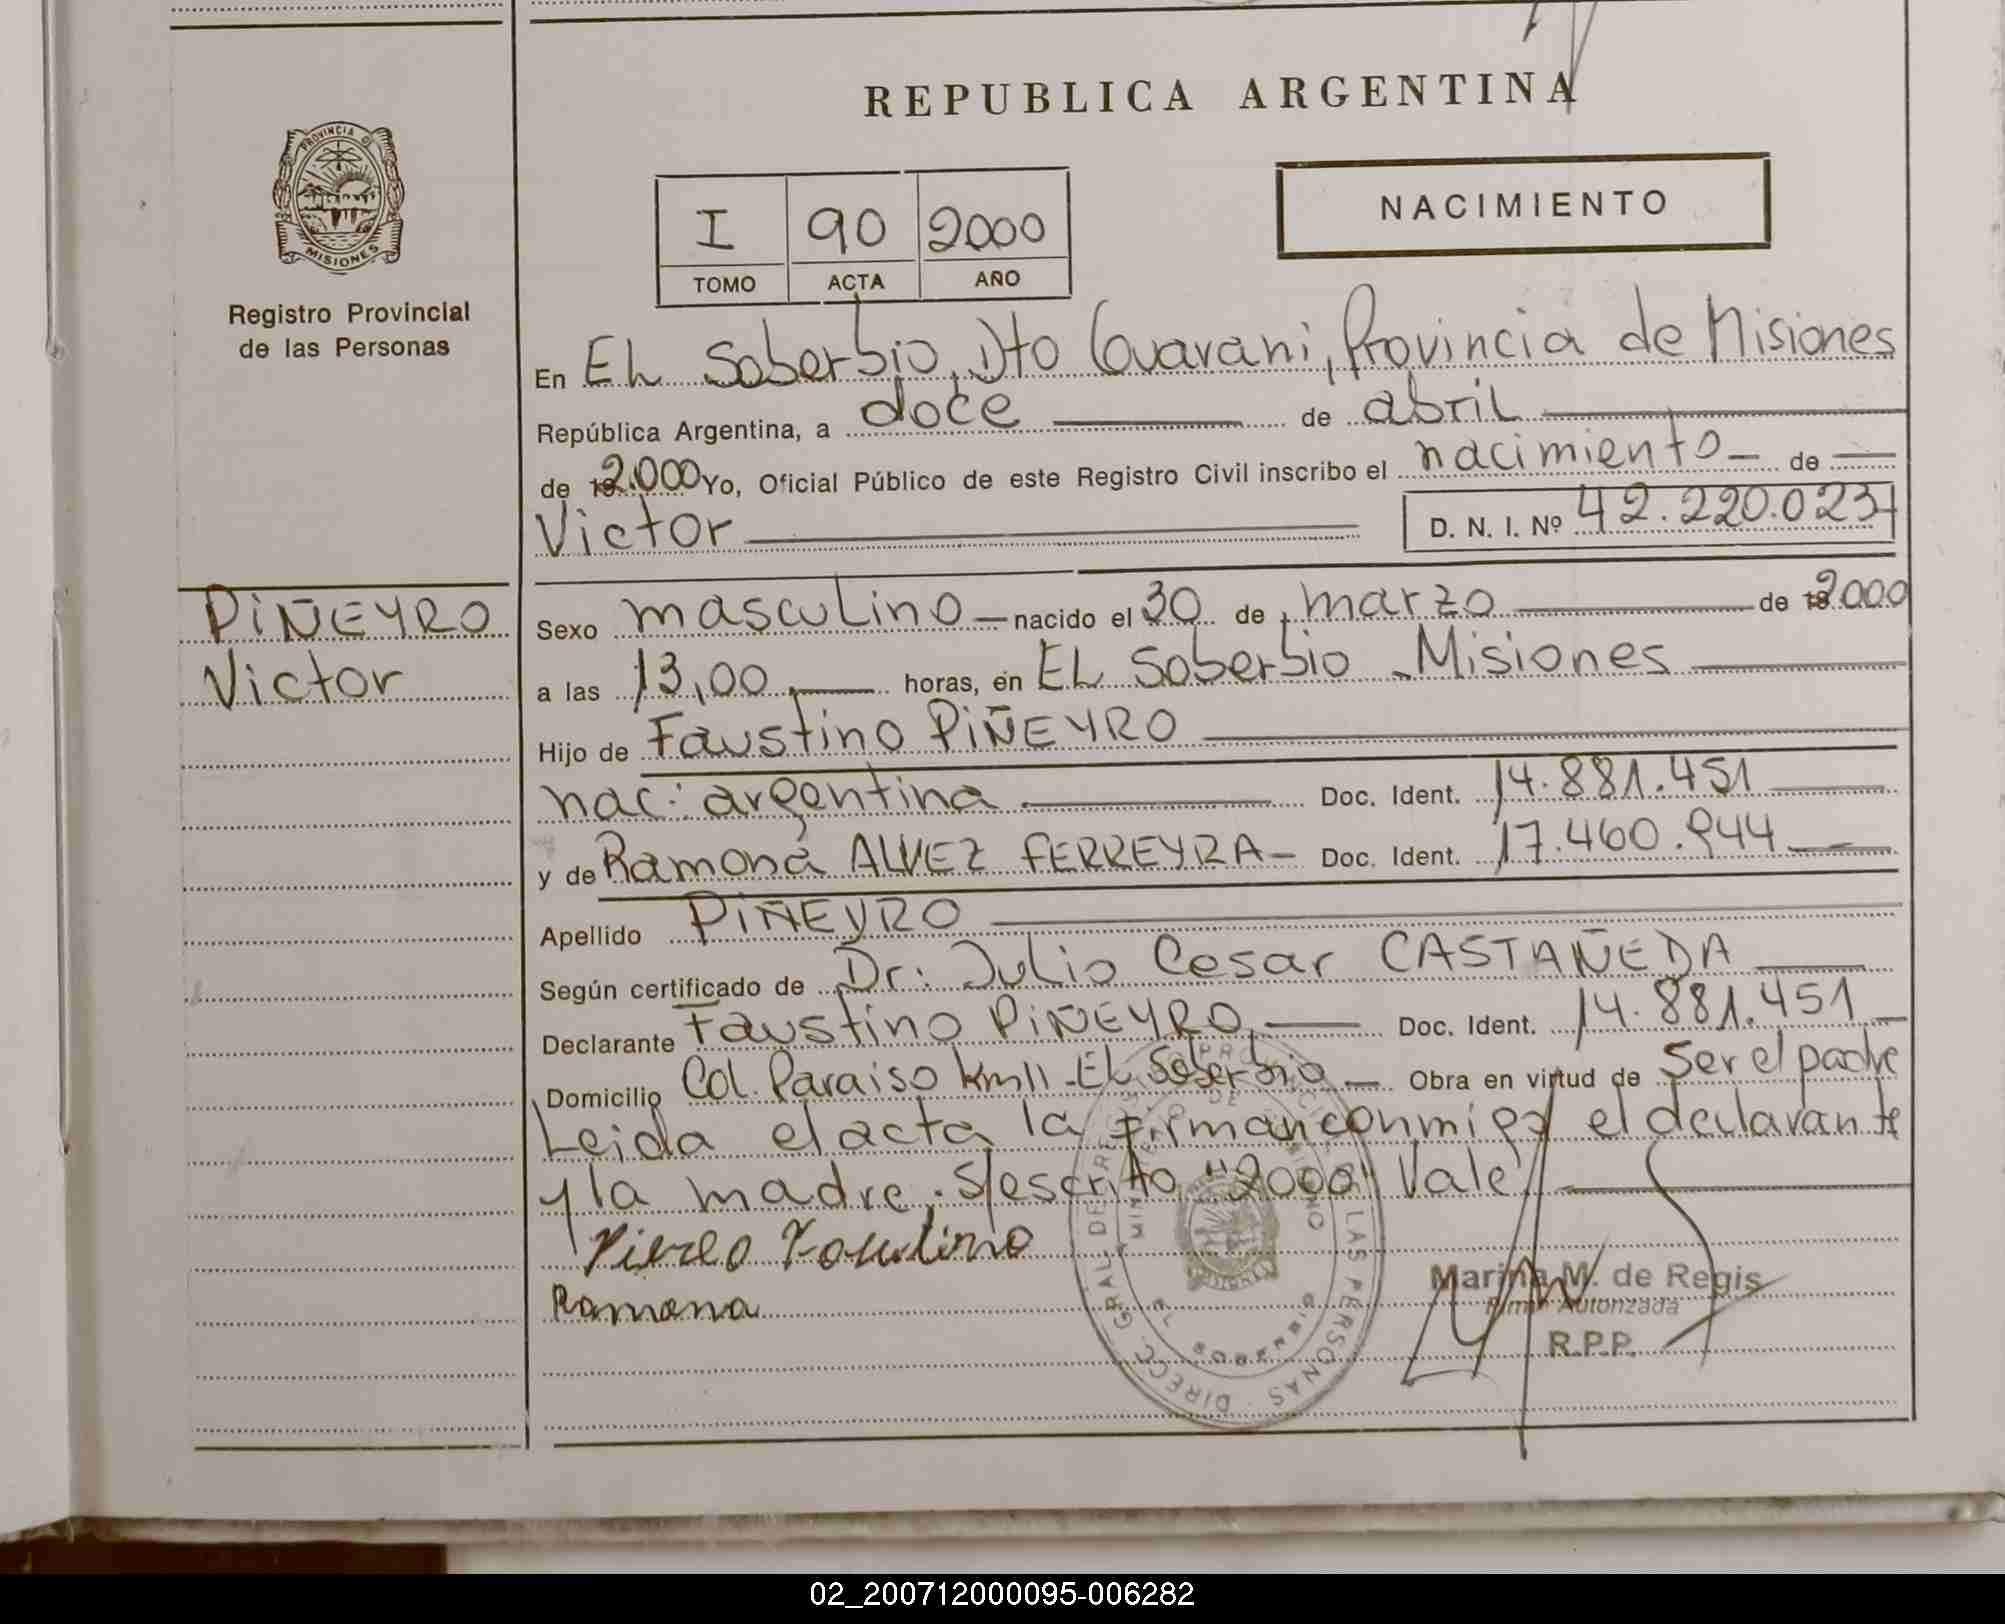 REPUBLICA ARGENTINA
PROVINCIA DE
MISIONES
Registro Provincial
de las Personas
I 90 2000
TOMO ACTA AÑO
NACIMIENTO
En EL Soberbio, Dto Guarani, Provincia de Misiones
República Argentina, a doce de abril
de 2.000 Yo, Oficial Público de este Registro Civil inscribo el nacimiento de
Victor D. N. I. Nº 42.220.023
PIÑEYRO
Victor
Sexo masculino nacido el 30 de marzo de 2000
a las 13,00 horas, en EL Soberbio - Misiones
Hijo de Faustino PIÑEYRO
nac: argentina Doc. Ident. 14.881.451
y de Ramona ALVEZ FERREYRA Doc. Ident. 17.460.944
Apellido PIÑEYRO
Según certificado de Dr. Julio Cesar CASTAÑEDA
Declarante Faustino PIÑEYRO Doc. Ident. 14.881.451
Domicilio Col. Paraiso km 11 - EL Soberbio Obra en virtud de ser el padre
Leida el acta la firman conmigo el declarante
y la madre. S/escrito "2000" Vale
Faustino
Ramona
Marina M. de Regis
Firma Autorizada
R.P.P.
DIRECC. GRAL. DE LAS PERSONAS
02_200712000095-006282